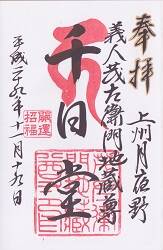 奉拝
上州月夜野
義人茂左衛門地蔵尊
千日堂
厳運
招福
平成二十九年十一月十九日